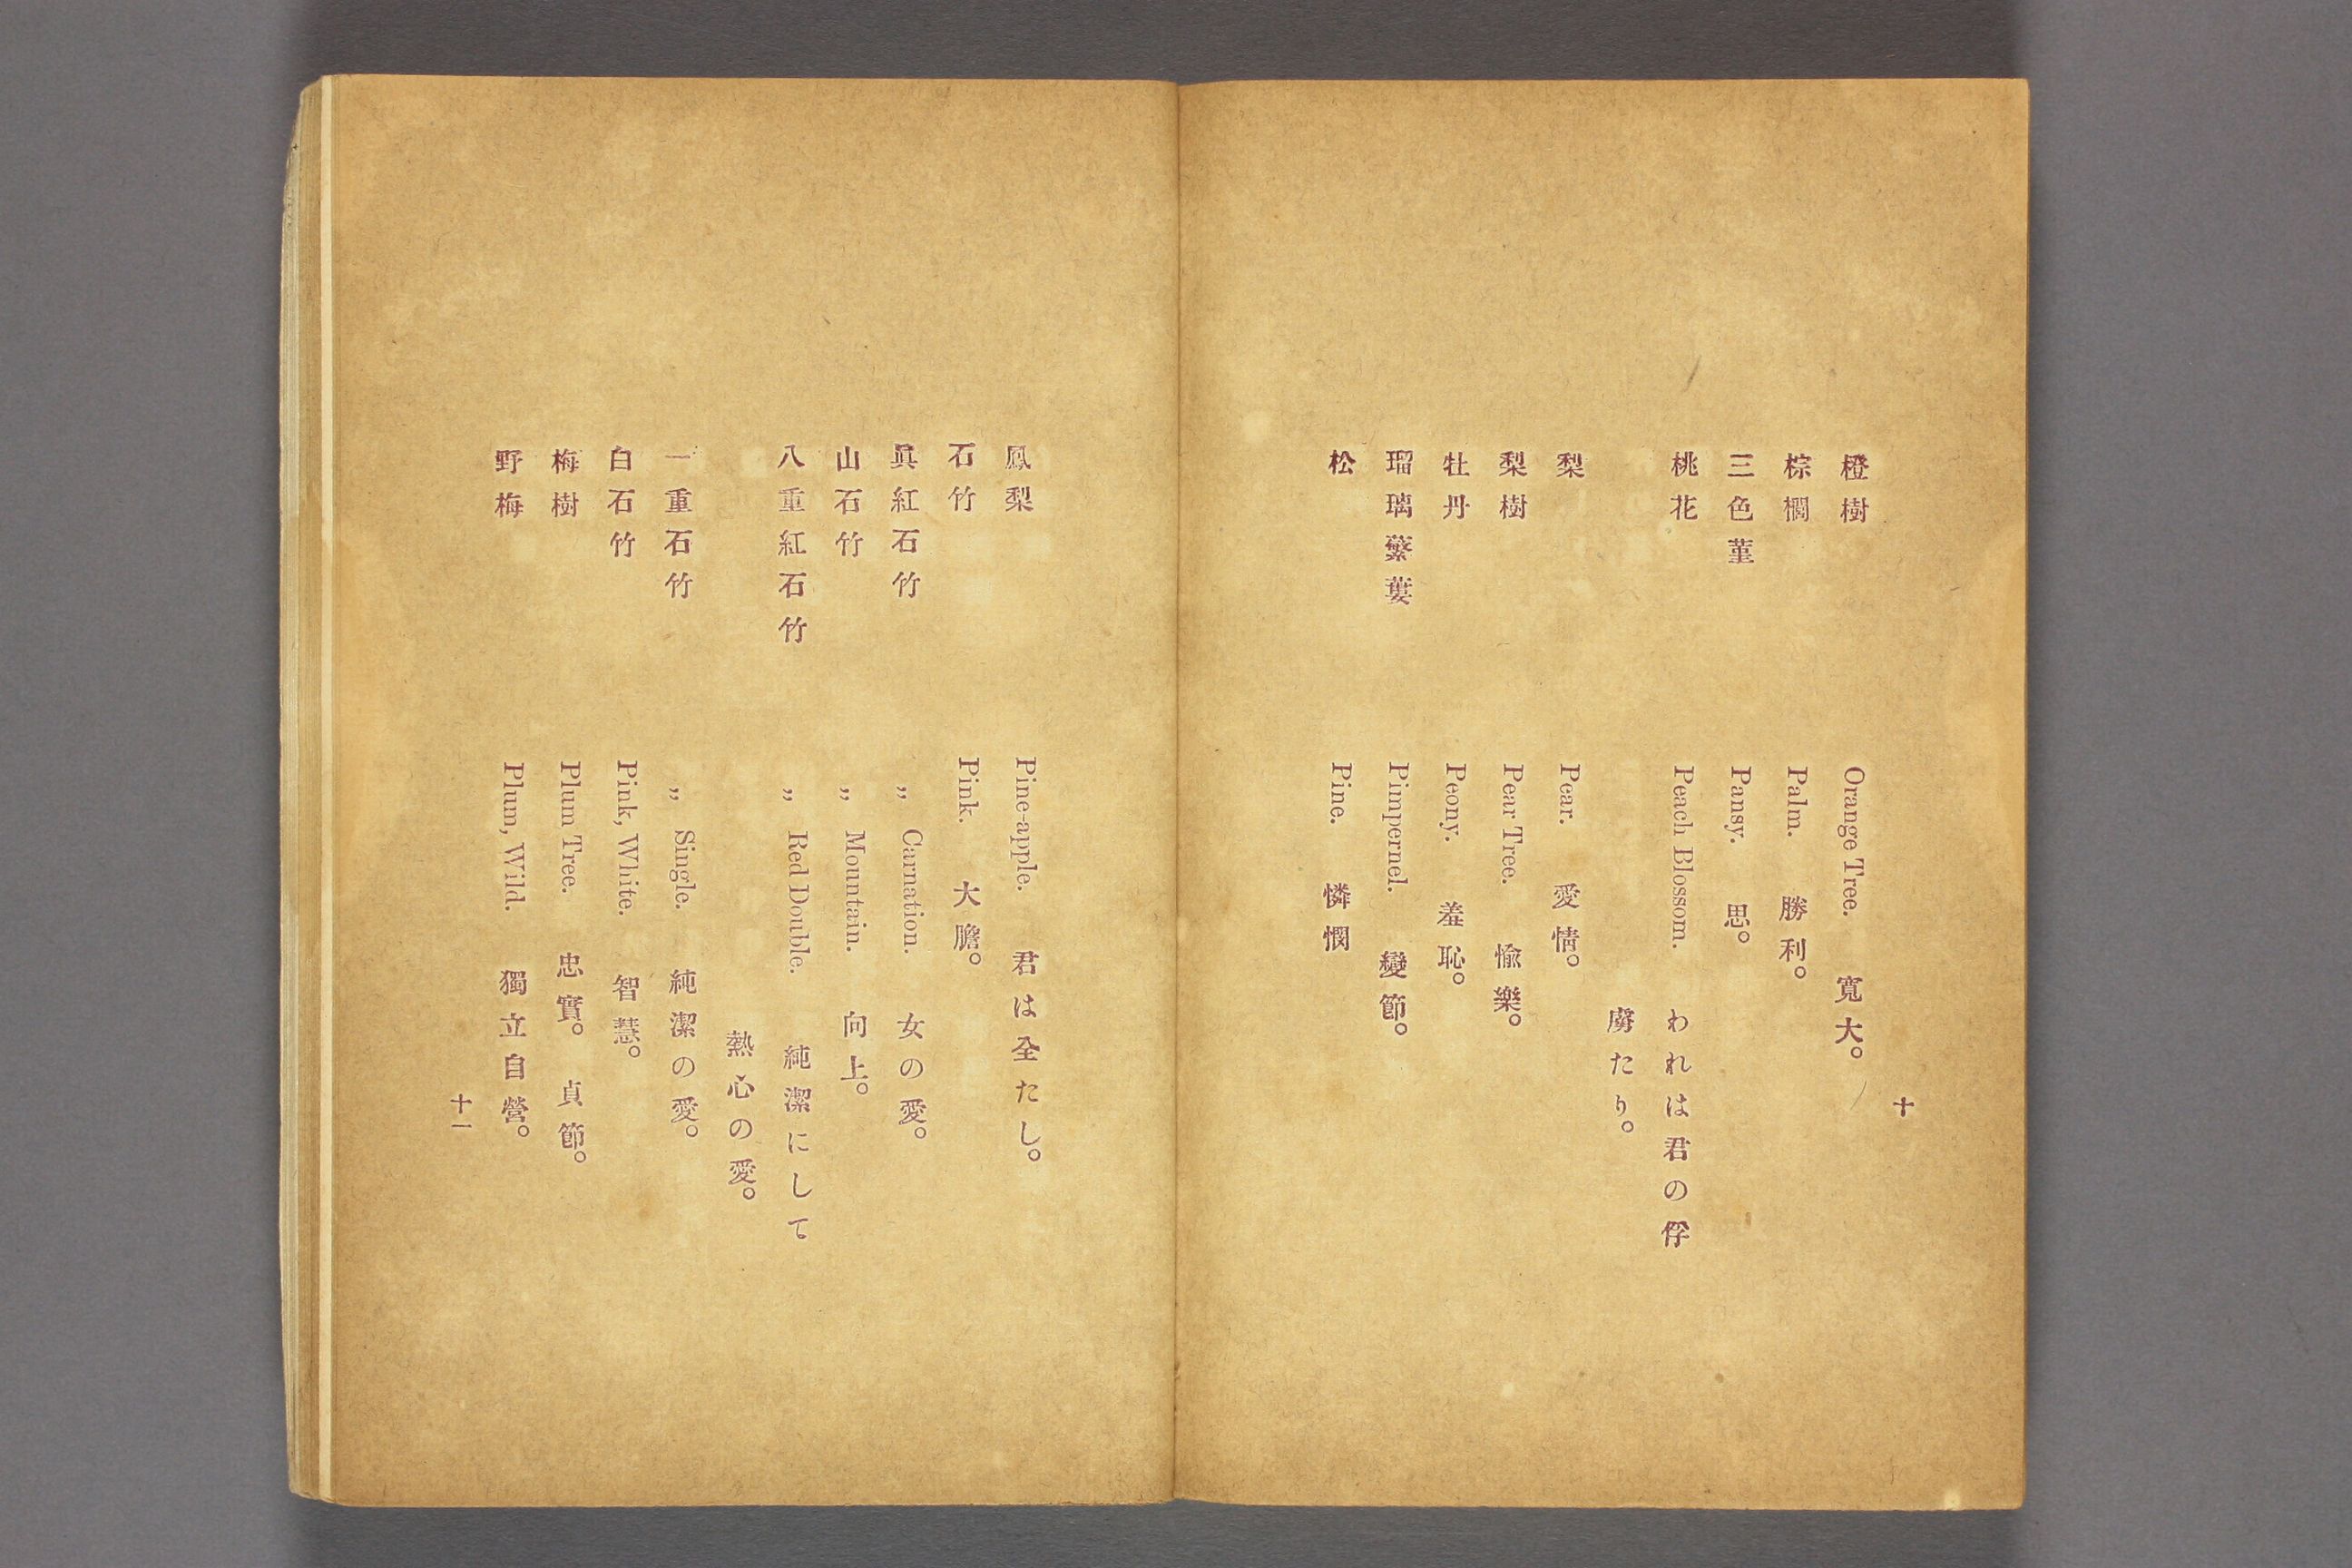 十
橙樹 Orange Tree. 寬大。
棕櫚 Palm. 勝利。
三色菫 Pansy. 思。
桃花 Peach Blossom. われは君の俘
虜たり。
梨 Pear. 愛情。
梨樹 Pear Tree. 愉樂。
牡丹 Peony. 羞恥。
瑠璃蘩蔞 Pimpernel. 變節。
松 Pine. 憐憫
鳳梨 Pine-apple. 君は全たし。
石竹 Pink. 大膽。
眞紅石竹 〃 Carnation. 女の愛。
山石竹 〃 Mountain. 向上。
八重紅石竹 〃 Red Double. 純潔にして
熱心の愛。
一重石竹 〃 Single. 純潔の愛。
白石竹 Pink, White. 智慧。
梅樹 Plum Tree. 忠實。 貞節。
野梅 Plum, Wild. 獨立自營。
十一